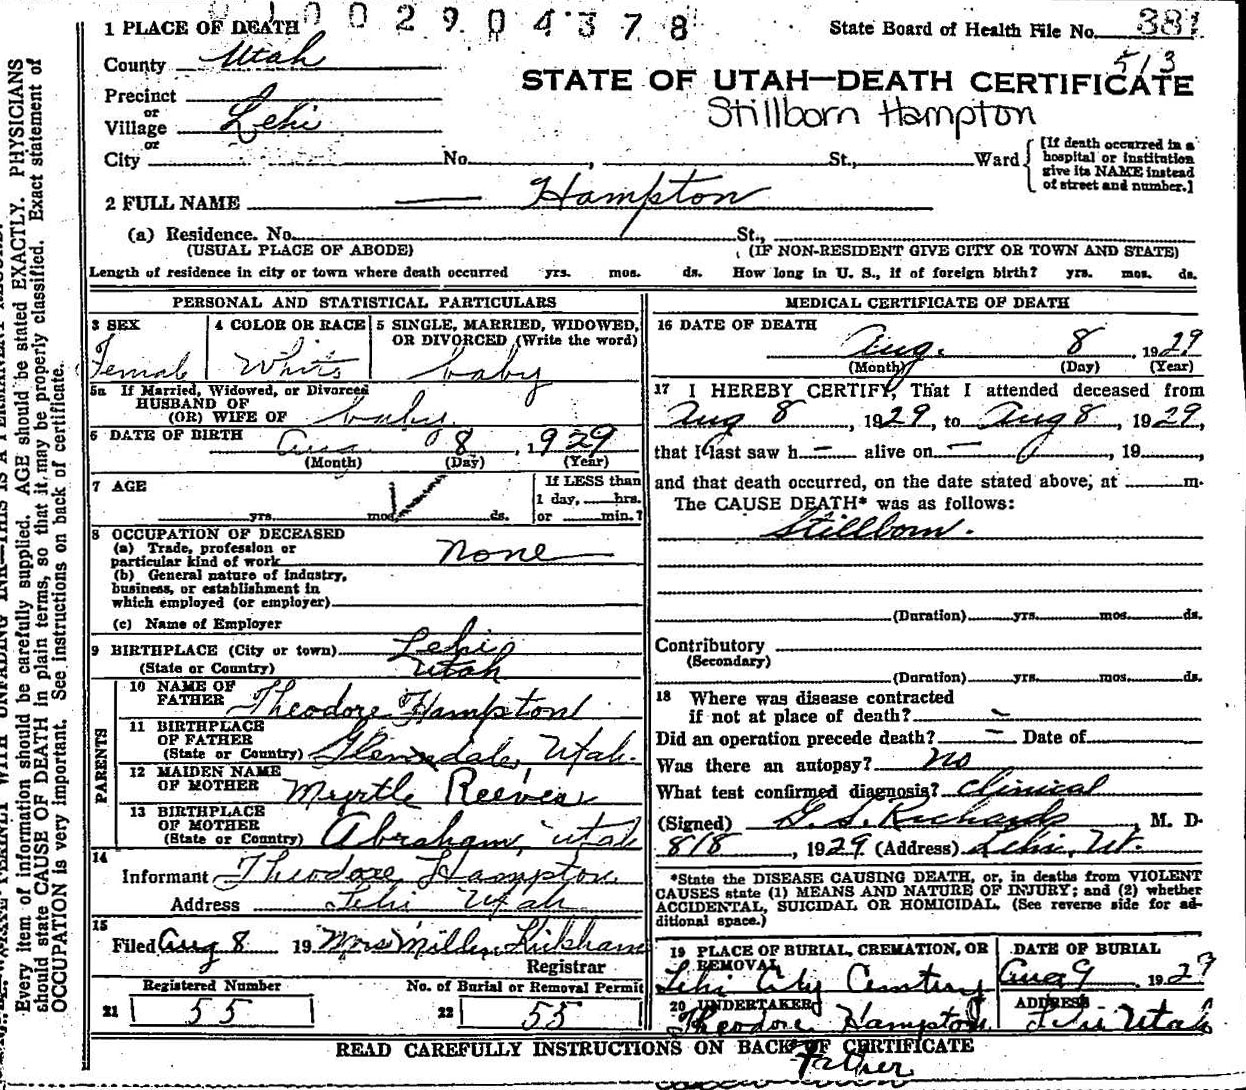 0 1 0 0 2 9 0 4 3 7 8
1 PLACE OF DEATH
State Board of Health File No. 381
513
County Utah
STATE OF UTAH—DEATH CERTIFICATE
Stillborn Hampton
Precinct
or
Village Lehi
or
City No. , St., Ward
[If death occurred in a
hospital or institution
give its NAME instead
of street and number.]
2 FULL NAME — Hampton
(a) Residence. No. St.,
(USUAL PLACE OF ABODE) (IF NON-RESIDENT GIVE CITY OR TOWN AND STATE)
Length of residence in city or town where death occurred yrs. mos. ds. How long in U. S., if of foreign birth? yrs. mos. ds.
PERSONAL AND STATISTICAL PARTICULARS
3 SEX
Female
4 COLOR OR RACE
White
5 SINGLE, MARRIED, WIDOWED,
OR DIVORCED (Write the word)
baby
5a If Married, Widowed, or Divorced
HUSBAND OF
(OR) WIFE OF baby
6 DATE OF BIRTH Aug 8, 1929
(Month) (Day) (Year)
7 AGE
yrs. mos. ds.
If LESS than
1 day, hrs.
or min.?
8 OCCUPATION OF DECEASED
(a) Trade, profession or
particular kind of work none
(b) General nature of industry,
business, or establishment in
which employed (or employer)
(c) Name of Employer
9 BIRTHPLACE (City or town) Lehi
(State or Country) Utah
PARENTS
10 NAME OF
FATHER Theodore Hampton
11 BIRTHPLACE
OF FATHER
(State or Country) Glenndale, Utah.
12 MAIDEN NAME
OF MOTHER Myrtle Reeves
13 BIRTHPLACE
OF MOTHER
(State or Country) Abraham, Utah
14
Informant Theodore Hampton
Address Lehi Utah
15
Filed Aug 8 19 Mrs Kirkham
Registrar
Registered Number
21 55
No. of Burial or Removal Permit
22 55
MEDICAL CERTIFICATE OF DEATH
16 DATE OF DEATH
Aug. 8, 1929
(Month) (Day) (Year)
17 I HEREBY CERTIFY, That I attended deceased from
Aug 8, 1929, to Aug 8, 1929,
that I last saw h— alive on — , 19 ,
and that death occurred, on the date stated above, at m.
The CAUSE DEATH* was as follows:
Stillborn.
(Duration) yrs. mos. ds.
Contributory
(Secondary)
(Duration) yrs. mos. ds.
18 Where was disease contracted
if not at place of death? —
Did an operation precede death? — Date of
Was there an autopsy? no
What test confirmed diagnosis? clinical
(Signed) G. S. Richards, M. D.
8/8, 1929 (Address) Lehi, Ut.
*State the DISEASE CAUSING DEATH, or, in deaths from VIOLENT
CAUSES state (1) MEANS AND NATURE OF INJURY; and (2) whether
ACCIDENTAL, SUICIDAL OR HOMICIDAL. (See reverse side for ad-
ditional space.)
19 PLACE OF BURIAL, CREMATION, OR
REMOVAL
Lehi City Cemtery
DATE OF BURIAL
Aug 9 1929
20 UNDERTAKER
Theodore Hampton
ADDRESS
Lehi Utah
READ CAREFULLY INSTRUCTIONS ON BACK OF CERTIFICATE
Father
Every item of information should be carefully supplied. AGE should be stated EXACTLY. PHYSICIANS
should state CAUSE OF DEATH in plain terms, so that it may be properly classified. Exact statement of
OCCUPATION is very important. See instructions on back of certificate.